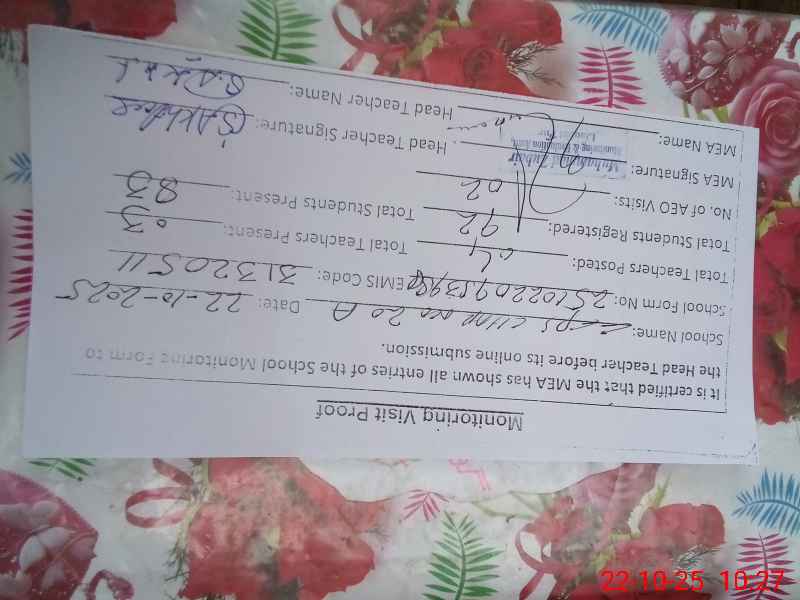 Monitoring Visit Proof
It is certified that the MEA has shown all entries of the School Monitoring Form to
the Head Teacher before its online submission.
School Name: GPS Date: 22-10-2025
School Form No: EMIS Code: 31320511
Total Teachers Posted: 04 Total Teachers Present: 03
Total Students Registered: 92 Total Students Present: 83
No. of AEO Visits: 02
MEA Signature: Head Teacher Signature:
MEA Name: Head Teacher Name:
Muhammad Zubair
Monitoring & Evaluation Asstt.
22-10-25 10:27